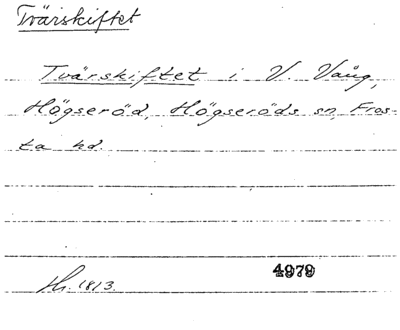 Tvärskiftet
Tvärskiftet i V. Vång,
Högseröd, Högseröds sn, Fros-
ta hd.
Hr. 1813.
4979